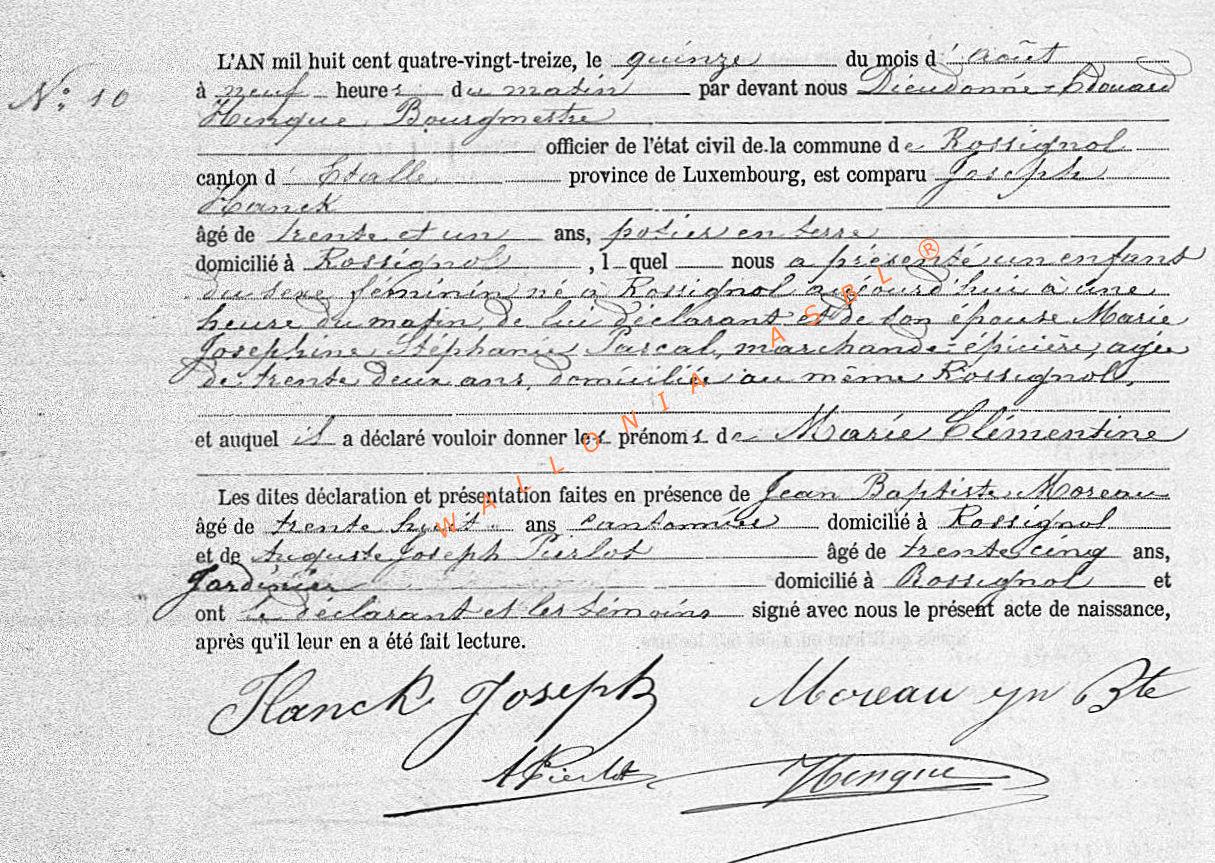 N° 10
L'AN mil huit cent quatre-vingt-treize, le quinze du mois d'août
à neuf heures du matin par devant nous Dieudonné-Edouard
Hinque, Bourgmestre
officier de l'état civil de la commune de Rossignol
canton d'Etalle province de Luxembourg, est comparu Joseph
Hanck
âgé de trente et un ans, potier en terre
domicilié à Rossignol, lquel nous a présenté un enfant
du sexe féminin né à Rossignol aujourd'hui à une
heure du matin, de lui déclarant et de son épouse Marie
Joséphine Stéphanie Pascal, marchande-épicière, agée
de trente deux ans, domiciliée au même Rossignol,
et auquel il a déclaré vouloir donner les prénoms de Marie Clémentine
Les dites déclaration et présentation faites en présence de Jean Baptiste Moreau
âgé de trente huit ans cantonnier domicilié à Rossignol
et de Auguste Joseph Pierlot âgé de trente cinq ans,
Jardinier domicilié à Rossignol et
ont le déclarant et les témoins signé avec nous le présent acte de naissance,
après qu'il leur en a été fait lecture.
Hanck Joseph Moreau jn Bte
A Pierlot Hinque
WALLONIA ASBL ®